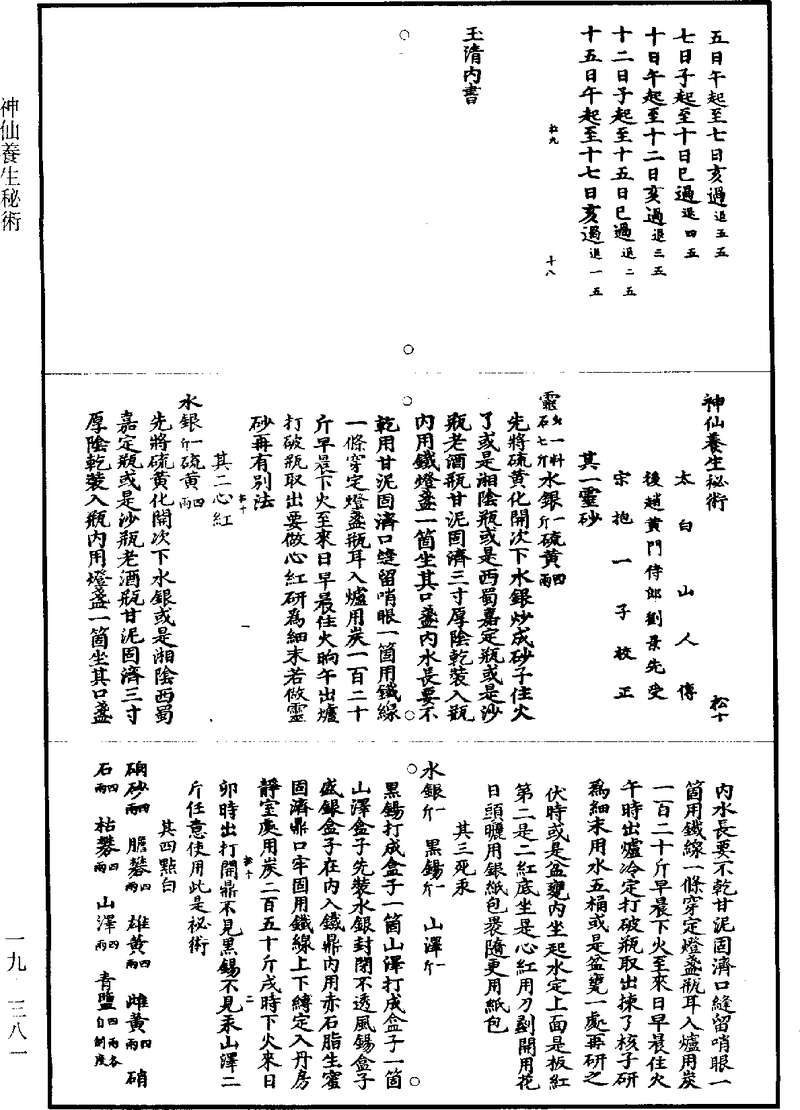 五日午起至七日亥過退五五
七日子起至十日巳過退四五
十日午起至十二日亥過退三五
十二日子起至十五日巳過退二五
十五日午起至十七日亥過退一五
松九 十八
玉清內書
神仙養生秘術 松十
太白山人傳
後趙黃門侍郎劉景先受
宋抱一子校正
其一靈砂
先將硫黃化開次下水銀炒成砂子住火
了或是湘陰瓶或是西蜀嘉定瓶或是沙
瓶老酒瓶甘泥固濟三寸厚陰乾裝入瓶
內用鐵燈盞一箇坐其口盞內水長要不
乾用甘泥固濟口縫留哨眼一箇用鐵線
一條穿定燈盞瓶耳入爐用炭一百二十
斤早晨下火至來日早晨住火晌午出爐
打破瓶取出要做心紅研為細末若做靈
砂再有別法
松十 一
其二心紅
水銀一斤硫黃四兩
先將硫黃化開次下水銀或是湘陰西蜀
嘉定瓶或是沙瓶老酒瓶甘泥固濟三寸
厚陰乾裝入瓶內用燈盞一箇坐其口盞
內水長要不乾甘泥固濟口縫留哨眼一
箇用鐵線一條穿定燈盞瓶耳入爐用炭
一百二十斤早晨下火至來日早晨住火
午時出爐冷定打破瓶取出揀了核子研
為細末用水五桶或是盆甕一處再研之
伏時或是盆甕內坐起水定上面是板紅
第二是二紅底坐是心紅用刀剷開用花
日頭曬用銀紙包裹隨更用紙包
其三死汞
水銀一斤 黑錫一斤 山澤一斤
黑錫打成盒子一箇山澤打成盒子一箇
山澤盒子先裝水銀封閉不透風錫盒子
盛銀盒子在內入鐵鼎內用赤石脂生蜜
固濟鼎口牢固用鐵線上下縛定入丹房
靜室處用炭二百五十斤戌時下火來日
松十 二
卯時出打開鼎不見黑錫不見汞山澤二
斤任意使用此是祕術
其四點白
硇砂四兩 膽礬四兩 雄黃四兩 雌黃四兩 硝
石四兩 枯礬四兩 山澤四兩 青鹽四兩各自制度
神仙養生秘術
一九·三八一